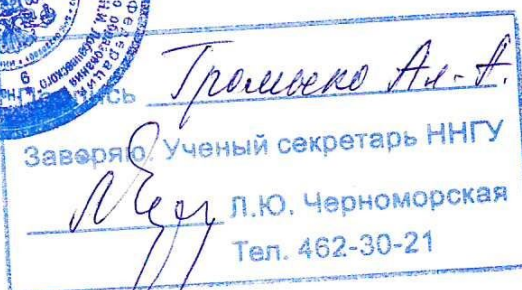 Подпись Громыко Ал. А.
Заверяю. Ученый секретарь ННГУ
Л.Ю. Черноморская
Тел. 462-30-21